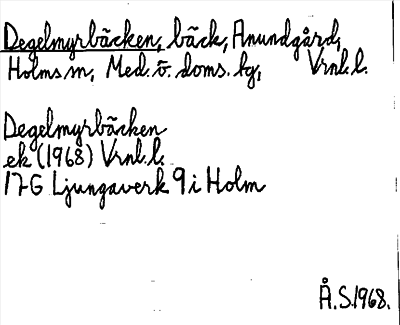 Degelmyrbäcken, bäck, Anundgård,
Holms sn, Med. v. doms. lg, Vrnl. l.
Degelmyrbäcken
ek (1968) Vrnl. l.
17G Ljungaverk 9 i Holm
Å.S. 1968.